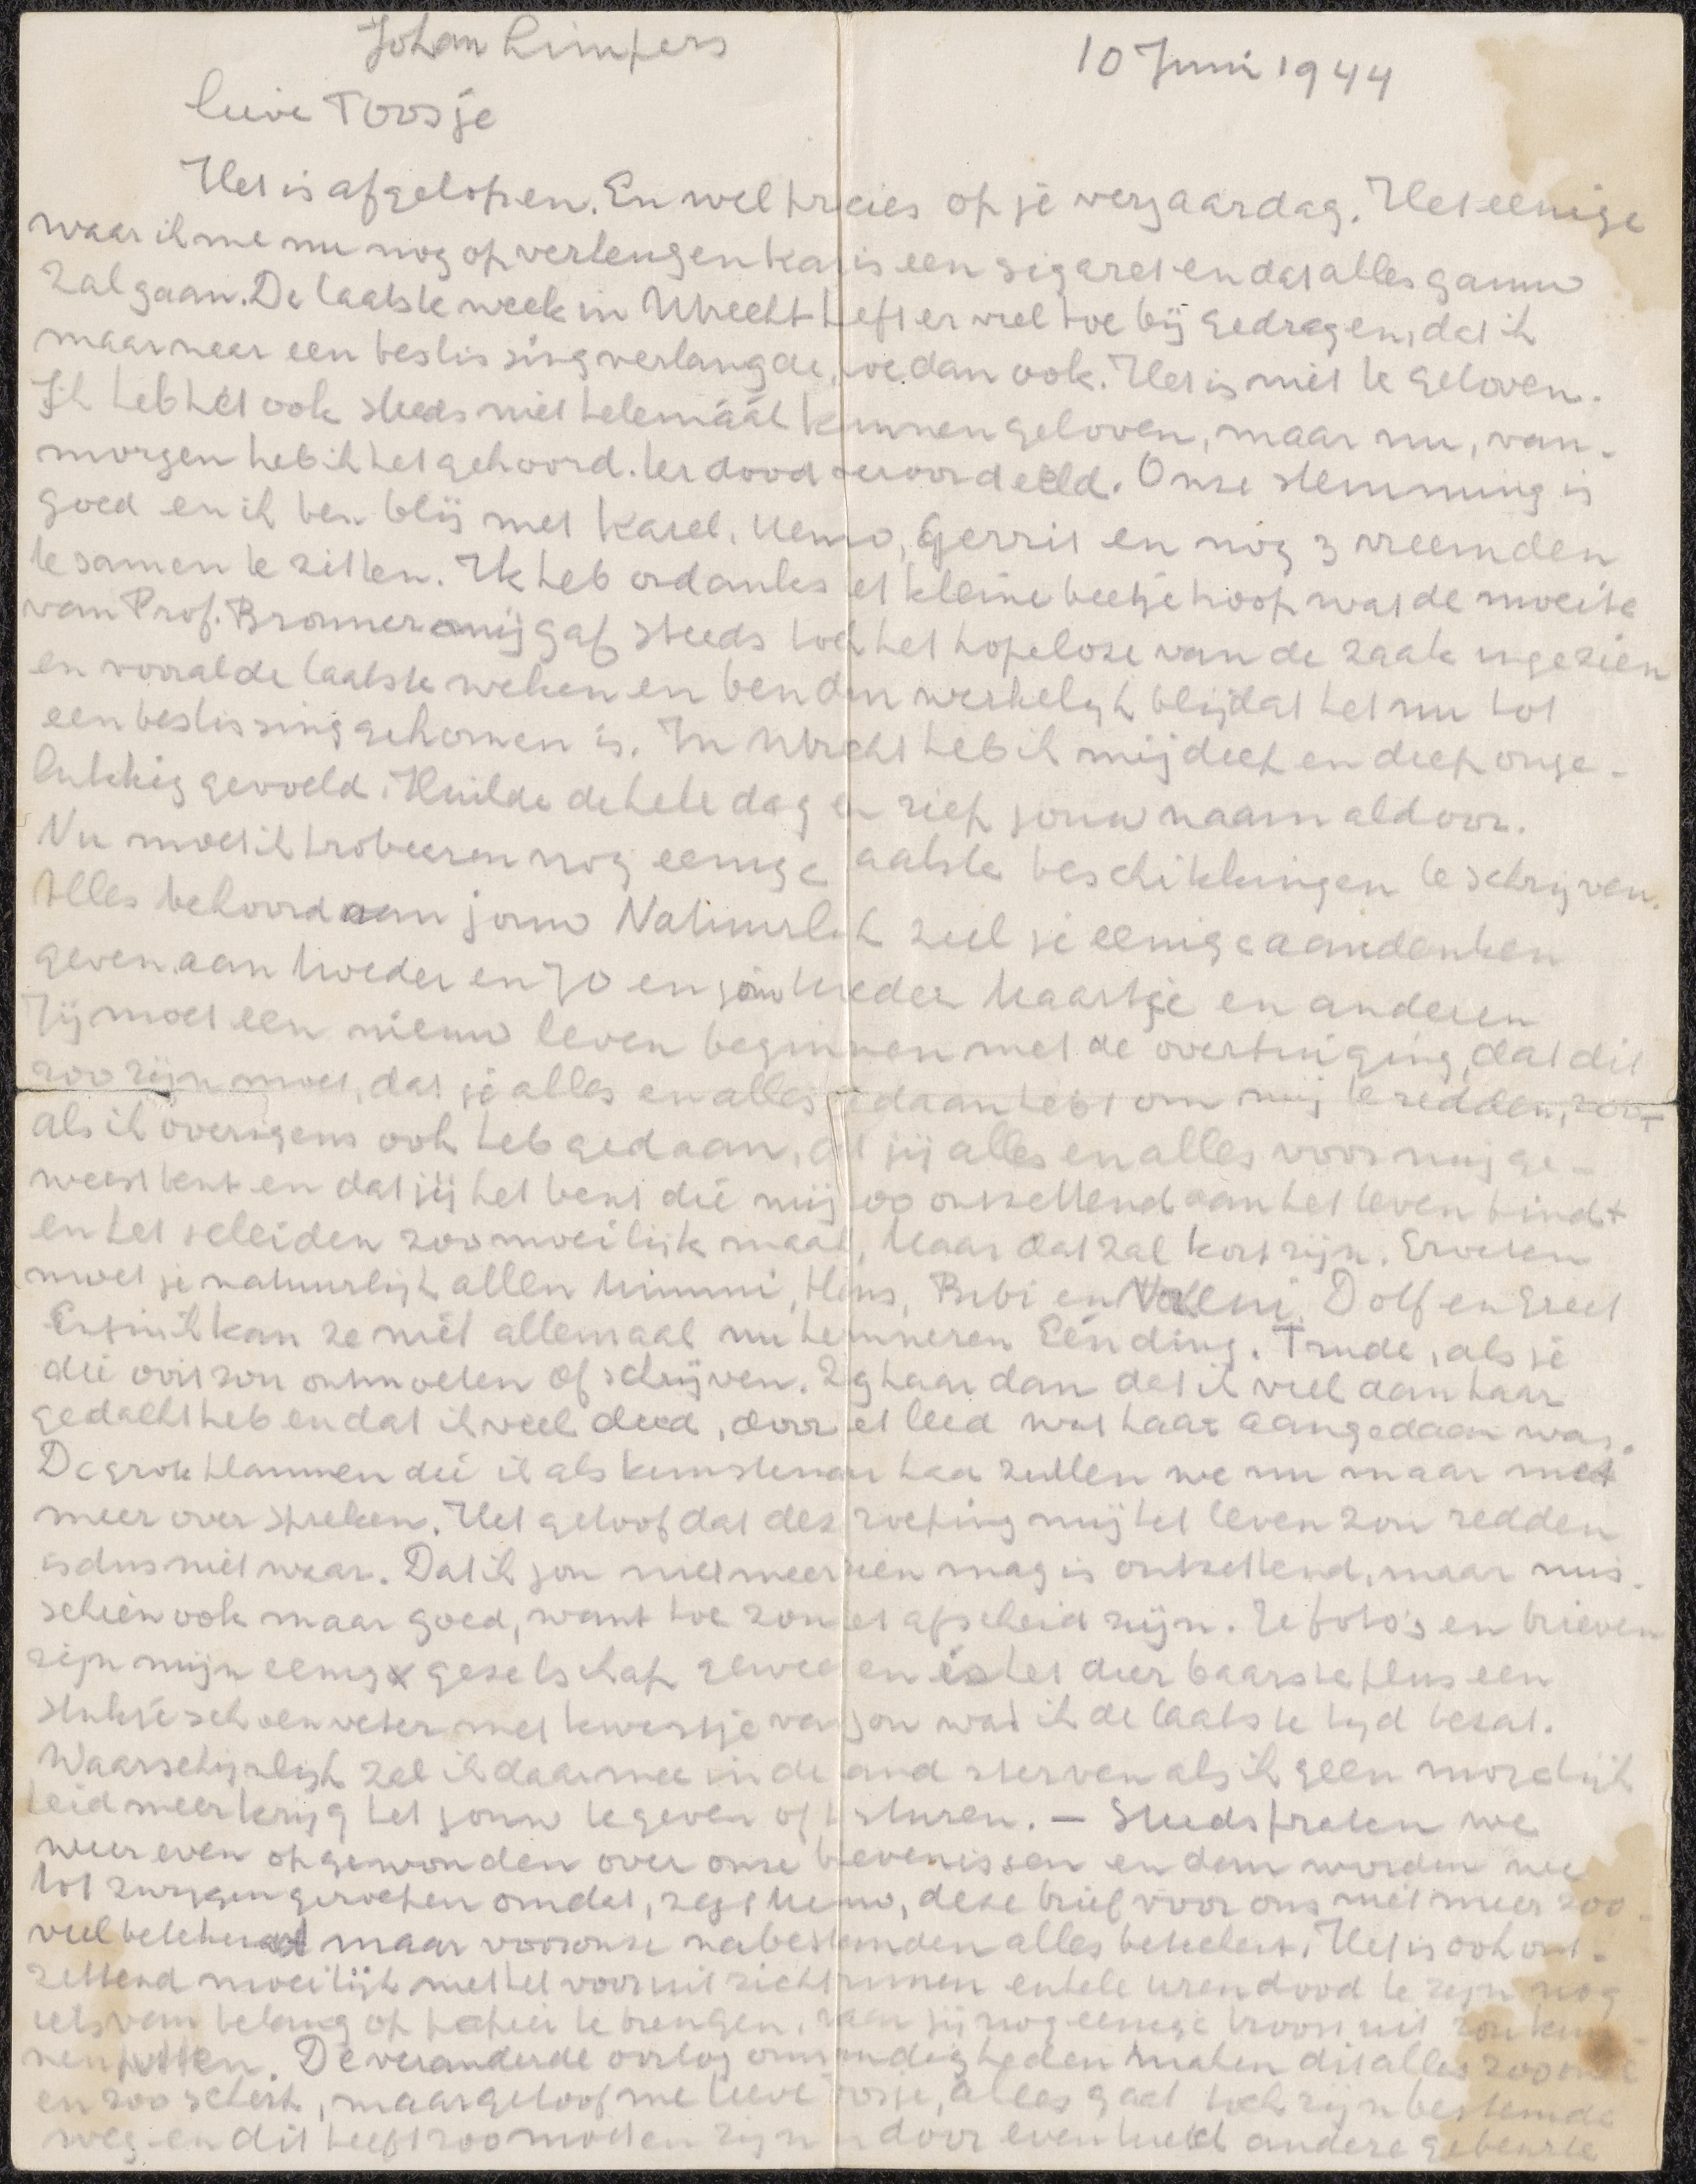 Johan Limpers
10 Juni 1944
lieve Toosje
Het is afgelopen. En wel precies op je verjaardag. Het eenige
waar ik me nu nog op verleugen kan is een sigaret en dat alles gauw
zal gaan. De laatste week in Utrecht heeft er veel toe bij gedragen, dat ik
maar naar een beslissing verlangde, hoe dan ook. Het is niet te geloven.
Ik heb het ook steeds niet helemáál kunnen geloven, maar nu, van-
morgen heb ik het gehoord. ter dood veroordeeld. Onze stemming is
goed en ik ben blij met Karel, Memo, Gerrit en nog 3 vreemden
te samen te zitten. Ik heb ondanks het kleine beetje hoop wat de moeite
van Prof. Bronner mij gaf steeds toch het hopeloze van de zaak ingezien
en vooral de laatste weken en ben dan werkelijk blij dat het nu tot
een beslissing gekomen is. In Utrecht heb ik mij diep en diep onge-
lukkig gevoeld. Huilde de hele dag en riep jouw naam aldoor.
Nu moet ik probeeren nog eenige laatste beschikkingen te schrijven.
Alles behoord aan jouw Natuurlijk zul je eenige aandenken
geven aan Moeder en Jo en jouw Moeder Maartje en anderen
Jij moet een nieuw leven beginnen met de overtuiging, dat dit
zoo zijn moet, dat je alles en alles gedaan hebt om mij te redden, zoo-
als ik overigens ook heb gedaan, dat jij alles en alles voor mij ge-
weest bent en dat jij het bent die mij zoo ontzettend aan het leven bindt
en het scheiden zoo moeilijk maakt, Maar dat zal kort zijn. Groeten
moet je natuurlijk allen Mimmi, Hans, Bubi en Dolf en Greet
Enfin ik kan ze niet allemaal nu herinneren Eén ding. Trude, als je
die ooit zou ontmoeten of schrijven. Zeg haar dan dat ik veel aan haar
gedacht heb en dat ik veel deed, door het leed wat haar aangedaan was.
De grote plannen die ik als kunstenaar had zullen we nu maar niet
meer over spreken. Het geloof dat deze roeping mij het leven zou redden
is dus niet waar. Dat ik jou niet meer zien mag is ontzettend, maar mis-
schien ook maar goed, want hoe zou het afscheid zijn. Je foto's en brieven
zijn mijn eenige geselschap geweest en is het dierbaarste plus een
stukje schoenveter met kwastje van jou wat ik de laatste tijd bezat.
Waarschijnlijk zal ik daarmee in de hand sterven als ik geen mogelijk
heid meer krijg het jouw te geven of te sturen. — Steeds praten we
weer even opgewonden over onze belevenissen en dan worden we
tot zwijgen geroepen omdat, zegt Memo, deze brief voor ons niet meer zoo-
veel betekend maar voor onze nabestaanden alles betekent. Het is ook ont-
zettend moeilijk met het vooruitzicht binnen enkele uren dood te zijn nog
iets van belang op papier te brengen, waar jij nog eenige troost uit zou kun-
nen putten. De veranderde oorlog omstandigheden maken dit alles zoo
en zoo slecht, maar geloof me lieve Toosje, alles gaat toch zijn bestemde
weg en dit heeft zoo moeten zijn door eventueel andere gebeurte